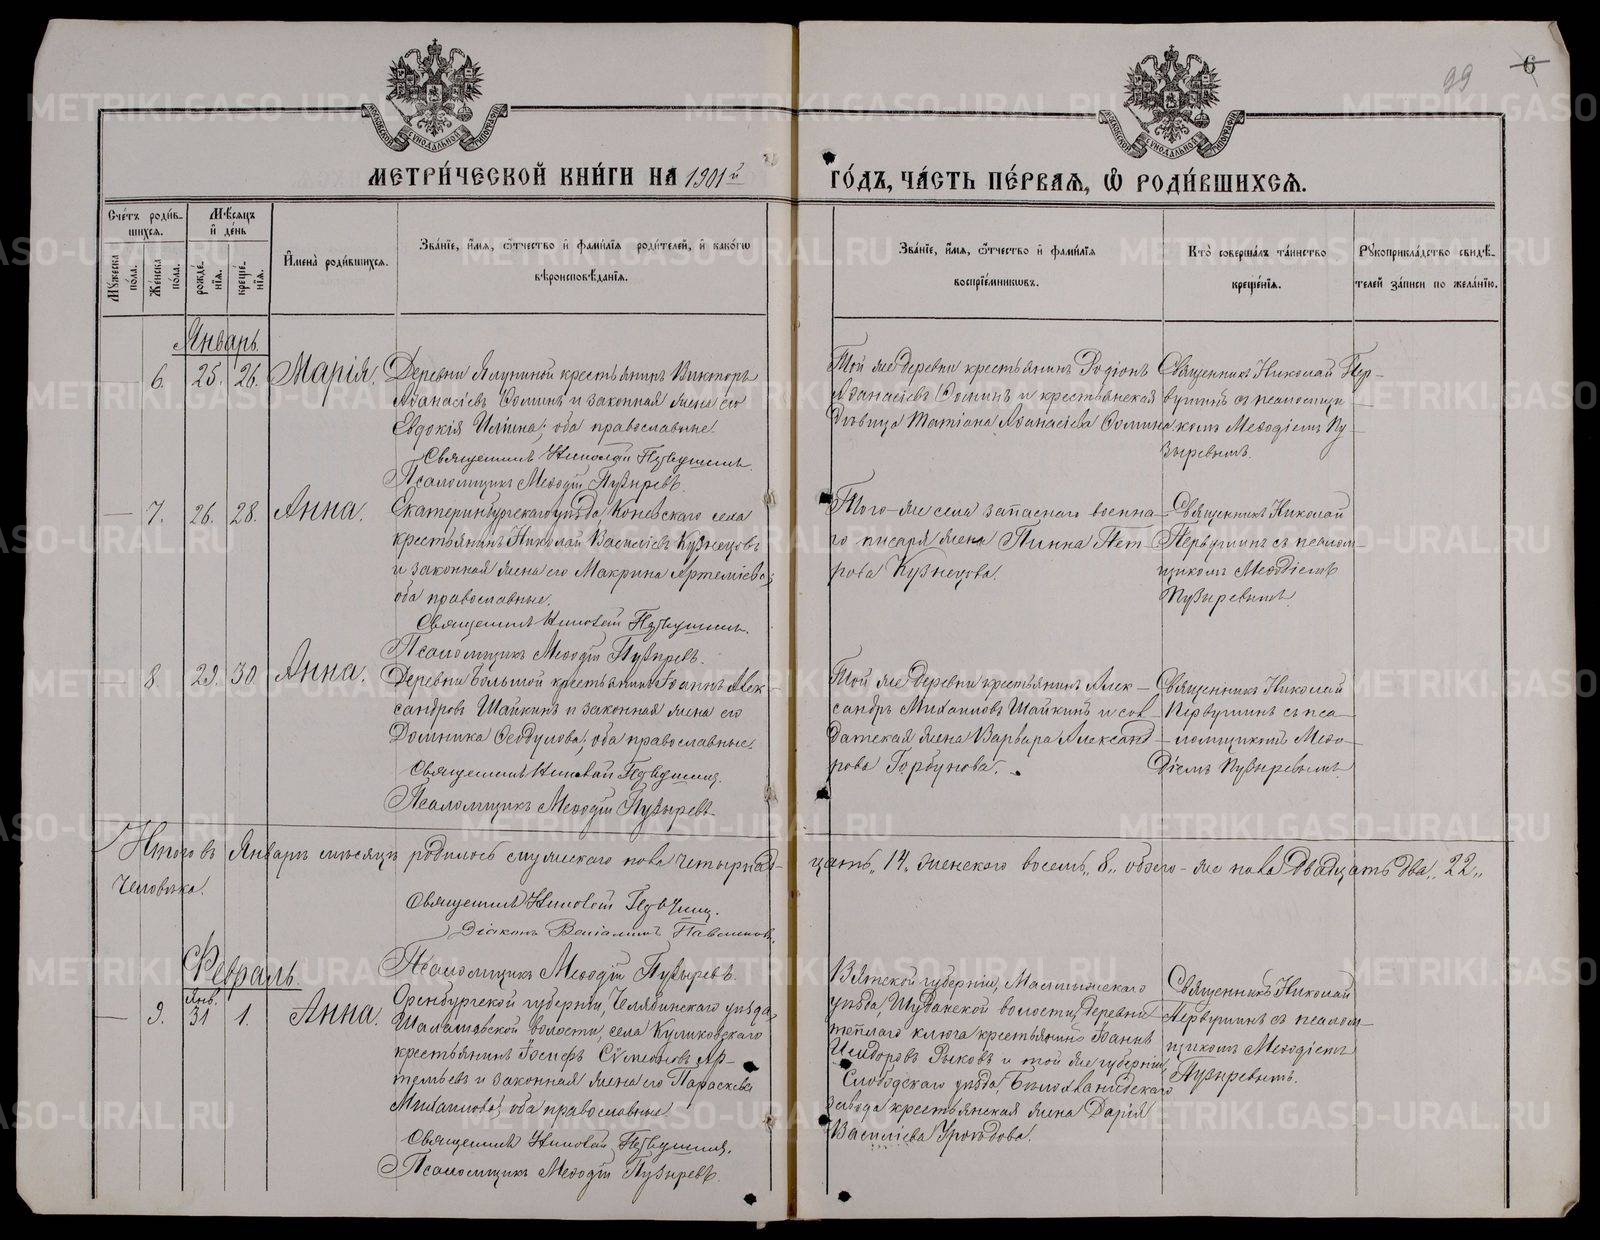 99 6
МОСКОВСКОЙ СУНОДАЛЬНОЙ ТИПОГРАФІИ
МОСКОВСКОЙ СУНОДАЛЬНОЙ ТИПОГРАФІИ
МЕТРИ́ЧЕСКОЙ КНИ́ГИ НА 1901й ГО́ДЪ, ЧА́СТЬ ПЕ́РВАЯ, Ѡ РОДИ́ВШИХСЯ.
Сче́тъ роди́в-
шихся.
Му́жеска по́ла.
Же́нска по́ла.
Мѣ́сяцъ
и҆ де́нь
рожде́-
нія.
креще́-
нія.
И҆мена̀ роди́вшихся.
Зва́ніе, и҆́мя, ѻ҆́тчество и҆ фами́лія роди́телей, и҆ како́гѡ
вѣроисповѣ́данія.
Зва́ніе, и҆́мя, ѻ҆́тчество и҆ фами́лія
воспріе́мниковъ.
Кто̀ соверша́лъ та́инство
креще́нія.
Рукоприкла́дство свидѣ́-
телей за́писи по жела́нію.
Январь.
— 6. 25. 26. Марія.
Деревни Ялуниной крестьянинъ Викторъ
Аѳанасіевъ Ѳоминъ и законная жена его
Евдокія Ильина; оба православные.
Священникъ Николай Первушинъ.
Псаломщикъ Меѳодій Пузыревъ.
Той же деревни крестьянинъ Родіонъ
Аѳанасіевъ Ѳоминъ и крестьянская
дѣвица Татіана Аѳанасіева Ѳомина
Священникъ Николай Пер-
вушинъ съ псаломщи-
комъ Меѳодіемъ Пу-
зыревымъ.
— 7. 26. 28. Анна.
Екатеринбургскаго уѣзда, Коневскаго села
крестьянинъ Николай Василіевъ Кузнецовъ
и законная жена его Макрина Артеміева;
оба православные.
Священникъ Николай Первушинъ.
Псаломщикъ Меѳодій Пузыревъ.
Того-же села запаснаго военна-
го писаря жена Пинна Пет-
рова Кузнецова.
Священникъ Николай
Первушинъ съ псалом-
щикомъ Меѳодіемъ
Пузыревымъ.
— 8. 29. 30. Анна.
Деревни Большой крестьянинъ Іоаннъ Алек-
сандровъ Шайкинъ и законная жена его
Домника Ѳеодулова; оба православные.
Священникъ Николай Первушинъ.
Псаломщикъ Меѳодій Пузыревъ.
Той же деревни крестьянинъ Алек-
сандръ Михаиловъ Шайкинъ и сол-
датская жена Варвара Александ-
рова Горбунова.
Священникъ Николай
Первушинъ съ пса-
ломщикомъ Меѳо-
діемъ Пузыревымъ.
Итого въ Январѣ мѣсяцѣ родилось мужескаго пола четырнад-
цать „14„ женскаго восемь „8„ обоего-же пола двадцать два „22„
человѣка.
Священникъ Николай Первушинъ.
Діаконъ Веніаминъ
Псаломщикъ Меѳодій Пузыревъ.
Февраль.
Янв.
— 9. 31 1. Анна.
Оренбургской губерніи, Челябинскаго уѣзда,
волости, села Куликовскаго
крестьянинъ Іосифъ Сѵмеоновъ Ар-
темьевъ и законная жена его Параскева
Михаилова; оба православные.
Священникъ Николай Первушинъ.
Псаломщикъ Меѳодій Пузыревъ.
Вятской губерніи, Малмыжскаго
уѣзда, волости, деревни
теплаго ключа крестьянинъ Іоаннъ
Исидоровъ Рыковъ и той же губерніи,
Слободскаго уѣзда,
завода крестьянская жена Дарія
Василіева
Священникъ Николай
Первушинъ съ псалом-
щикомъ Меѳодіемъ
Пузыревымъ.
METRIKI.GASO-URAL.RU